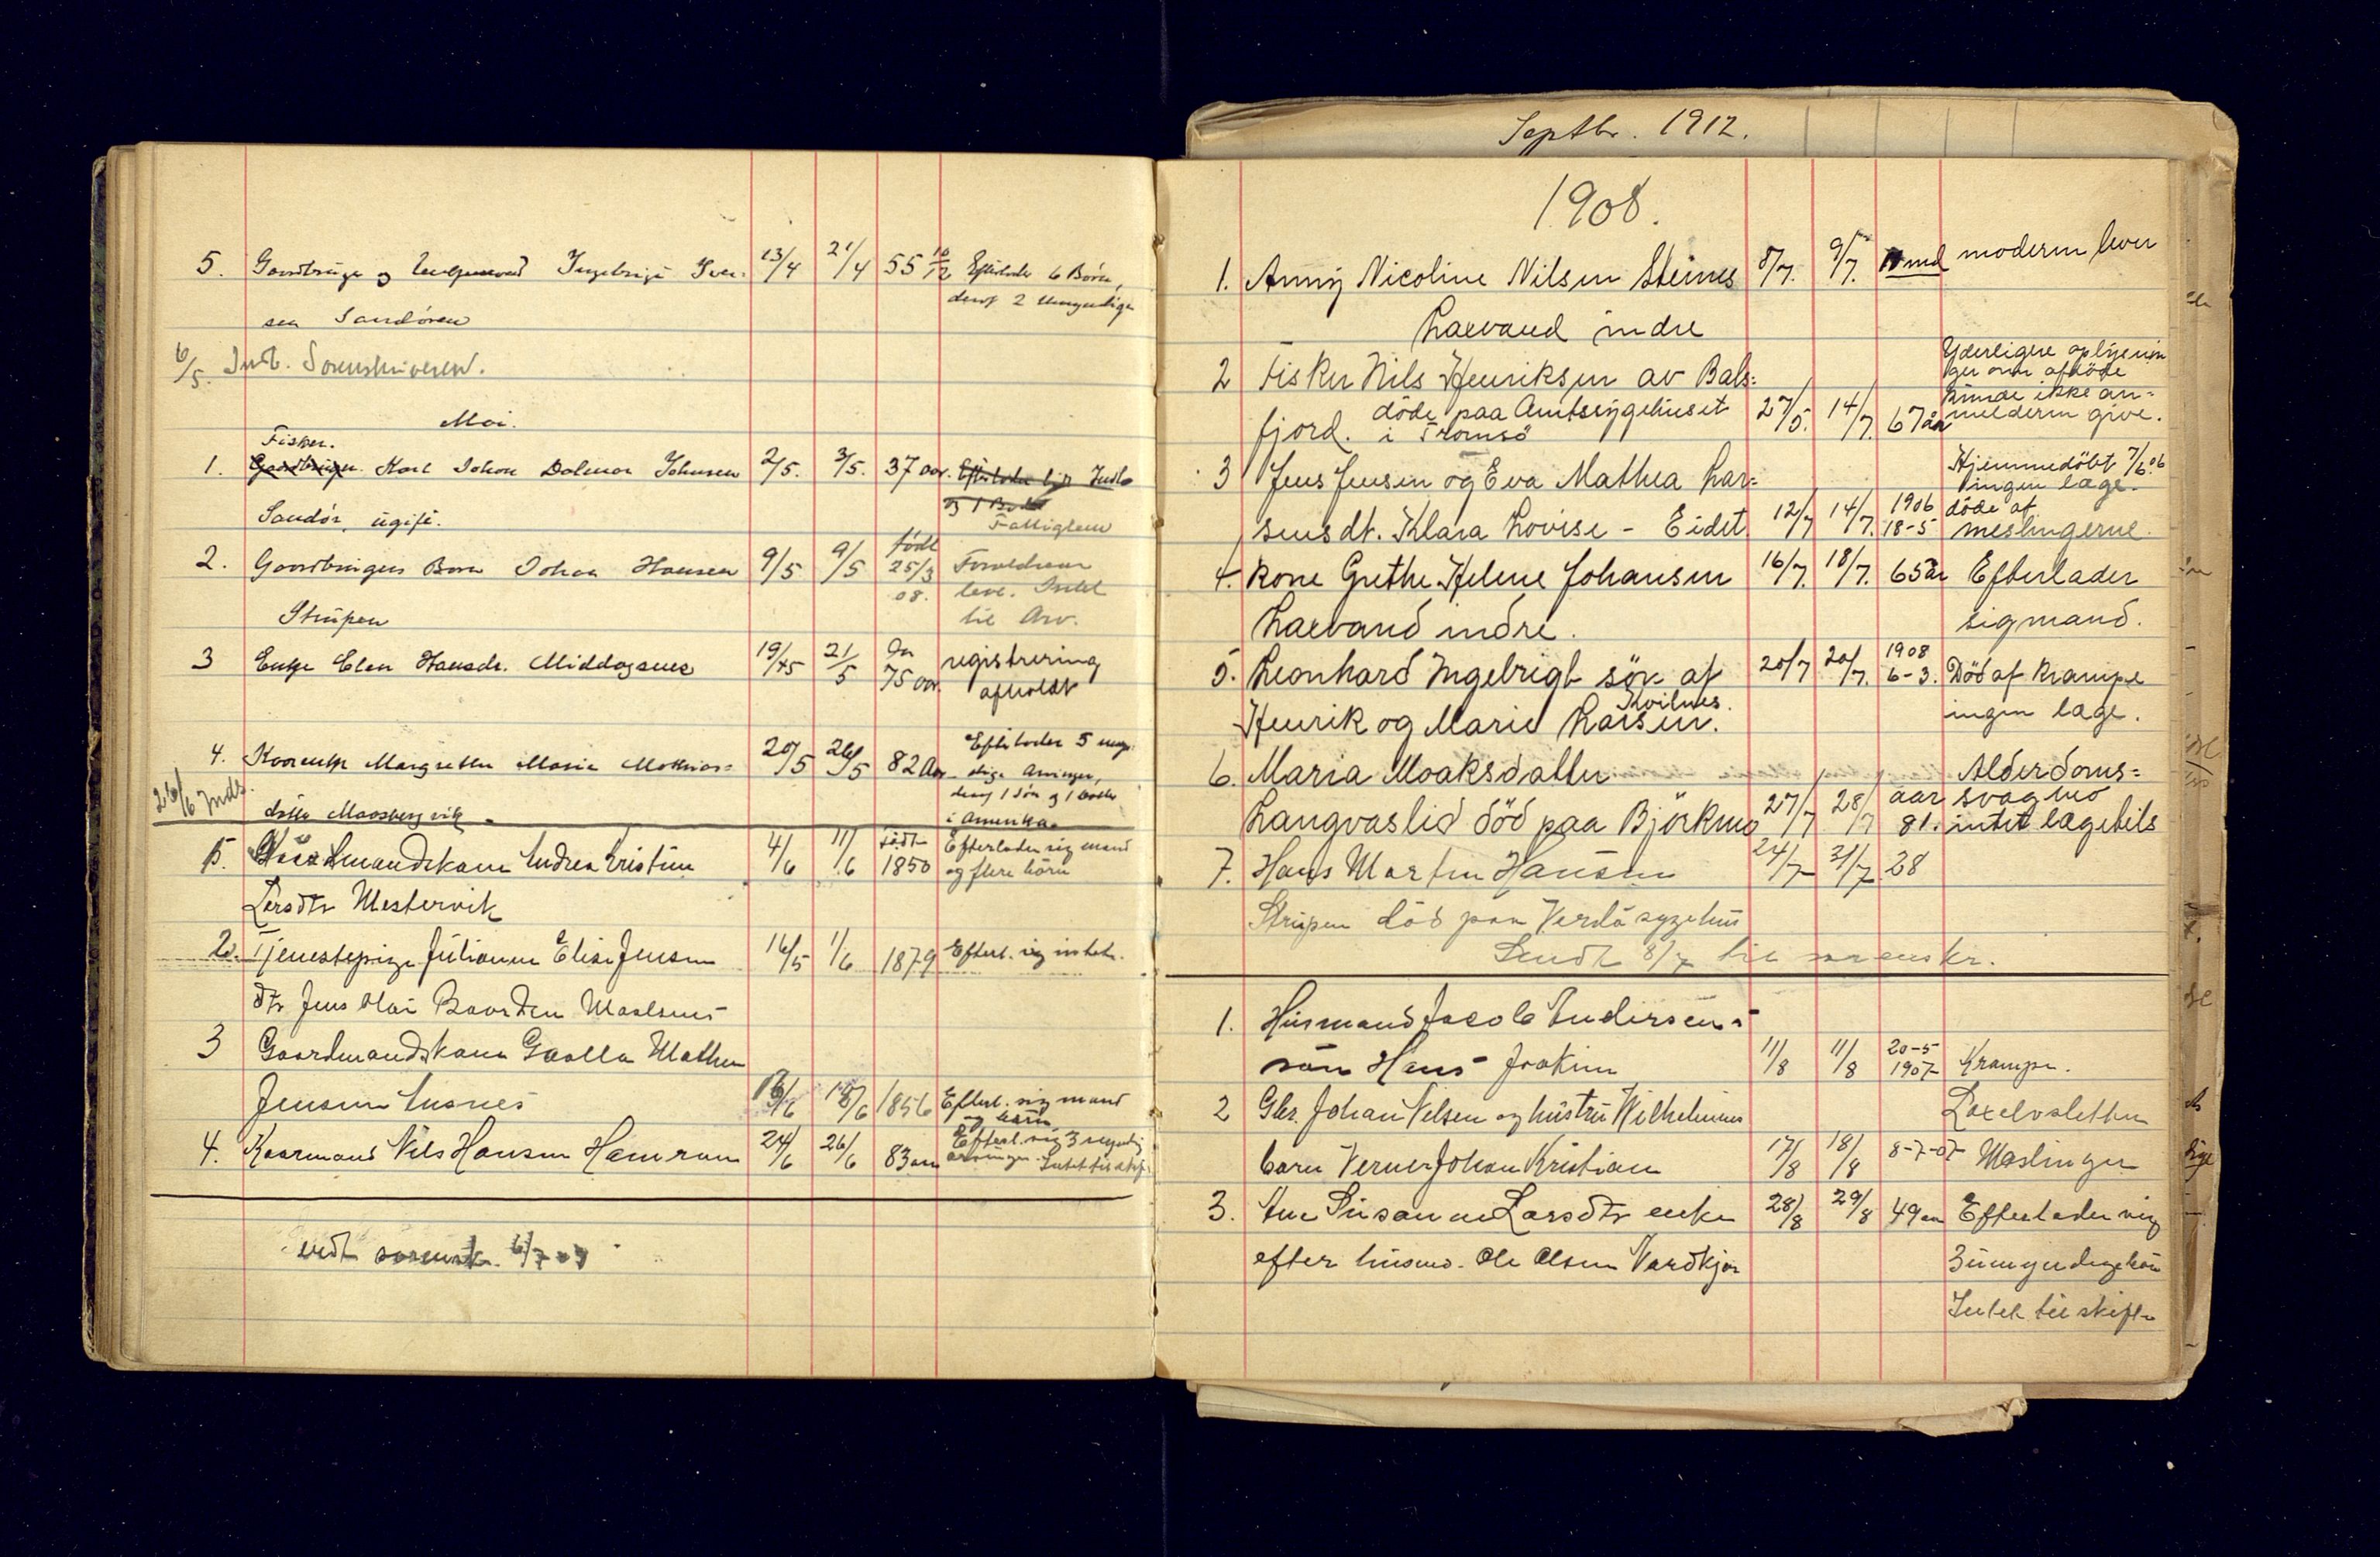 5. Gaardbruger og Ingebrigt Iver- 13/4 21/4 55 10/12 Efterlader 6 Børn,
sen Sandøren deraf 2 umyndige
6/5. Indb. Sorenskriveren.
Mai.
Fisker.
1. Gaardbruger Karl Johan Dalmar Johnsen 2/5. 3/5. 37 aar. Efterlader Intet
og 1
Sandør, ugift. Fattiglem
2. Gaardbrugers Barn Johan Hansen 9/5 9/5 født 25/3 08. Forældrene
Strupen leve. Intet
til Arv.
3 Enke Elen Hansdr. Middagsnes 19/5 21/5 Ca 75 aar. registrering
afholdt
4. Kaarenke Margrethe Marie Mathias= 20/5 26/5 82 Aar Efterlader 5 myn-
dige Arvinger,
deraf 1 Søn og 1 Datter
26/6 Inds. datter Maarsbergvik i Amerika.
1. Gaardmandskone Andrea Cristine 4/6 11/6 født 1850 Efterlader sig mand
og flere børn
Larsdtr Mestervik
2. Tjenestepige Julianne Elise Jensen 16/5 1/6 1879 Efterl. sig intet.
dtr Jens Olai Baardsen Maalsnes
3 Gaardmandskone Gaalla Mathea
Jensen Ausnes 13/6 18/6 1856 Efterl. sig mand
og børn
4. Kaarmand Nils Hansen Hamran 24/6 26/6 83 aar Efterl. sig 3 myndig
arvinger. Intet til skif.
sendt sorensk. 6/7 08
Septbr. 1912.
1908.
1. Anny Nicoline Nilsen Steines 8/7. 9/7. md moderen lever
Laxvand indre
2 Fisker Nils Henriksen av Bals= Yderligere oplysnin
ger om afdöde
fjord. döde paa Amtssygehuset 27/5. 14/7. 67 aar kunde ikke an=
i Tromsö melderen give.
3 Jens Jensen og Eva Mathea Lar= Hjemmedöbt 7/6 06
ingen læge.
sens dt. Klara Lovise - Eidet 12/7 14/7. 1906 18-5 döde af
meslingerne.
4. Kone Grethe Helene Johansen 16/7. 18/7. 65 år Efterlader
Laxvand indre. sig mand.
5. Leonhard Ingebrigt sön af 20/7 20/7. 1908 6-3. Död af krampe
Henrik og Marie Larsen. Kvilnes. ingen læge.
6. Maria Moaksdatter Alderdoms=
Langvaslid död paa Björkmo 27/7 28/7 aar 81. svaghed
intet lægehils
7. Hans Martin Hansen 24/7 31/7 28
Strupen död paa Verdö sygehus
Sendt 8/7 til sorenskr.
1. Husmand Jacob Andersens
sön Hans Joakim 11/8 11/8 20-5 1907 Krampe.
2 Gbr. Johan Nilsen og hustru Wilhelmines Laxelvsletten
barn Verner Johan Kristian 17/8 18/8 8-7-07 Meslinger
3. Ane Susanne Larsdtr enke 28/8 29/8 49 aar Efterlader sig
efter husmd. Ole Olsen Vardkjær 3 umyndige börn
Intet til skifte